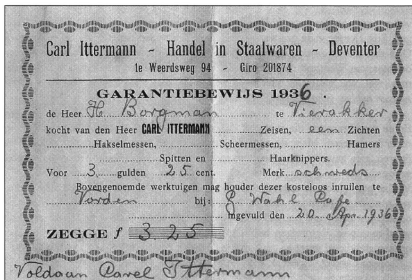 Carl Ittermann - Handel in Staalwaren - Deventer
1e Weerdsweg 94 - Giro 201874
GARANTIEBEWIJS 1936.
de Heer H. Borgman te Vierakker
kocht van den Heer CARL ITTERMANN Zeisen, een Zichten
Hakselmessen, Scheermessen, Hamers
Spitten en Haarknippers.
Voor 3 gulden 25 cent. Merk schweds
Bovengenoemde werktuigen mag houder dezer kosteloos inruilen te
Vorden bij: Wahl
ingevuld den 20 Apr. 1936
ZEGGE f 3 25
Voldaan Carel Ittermann